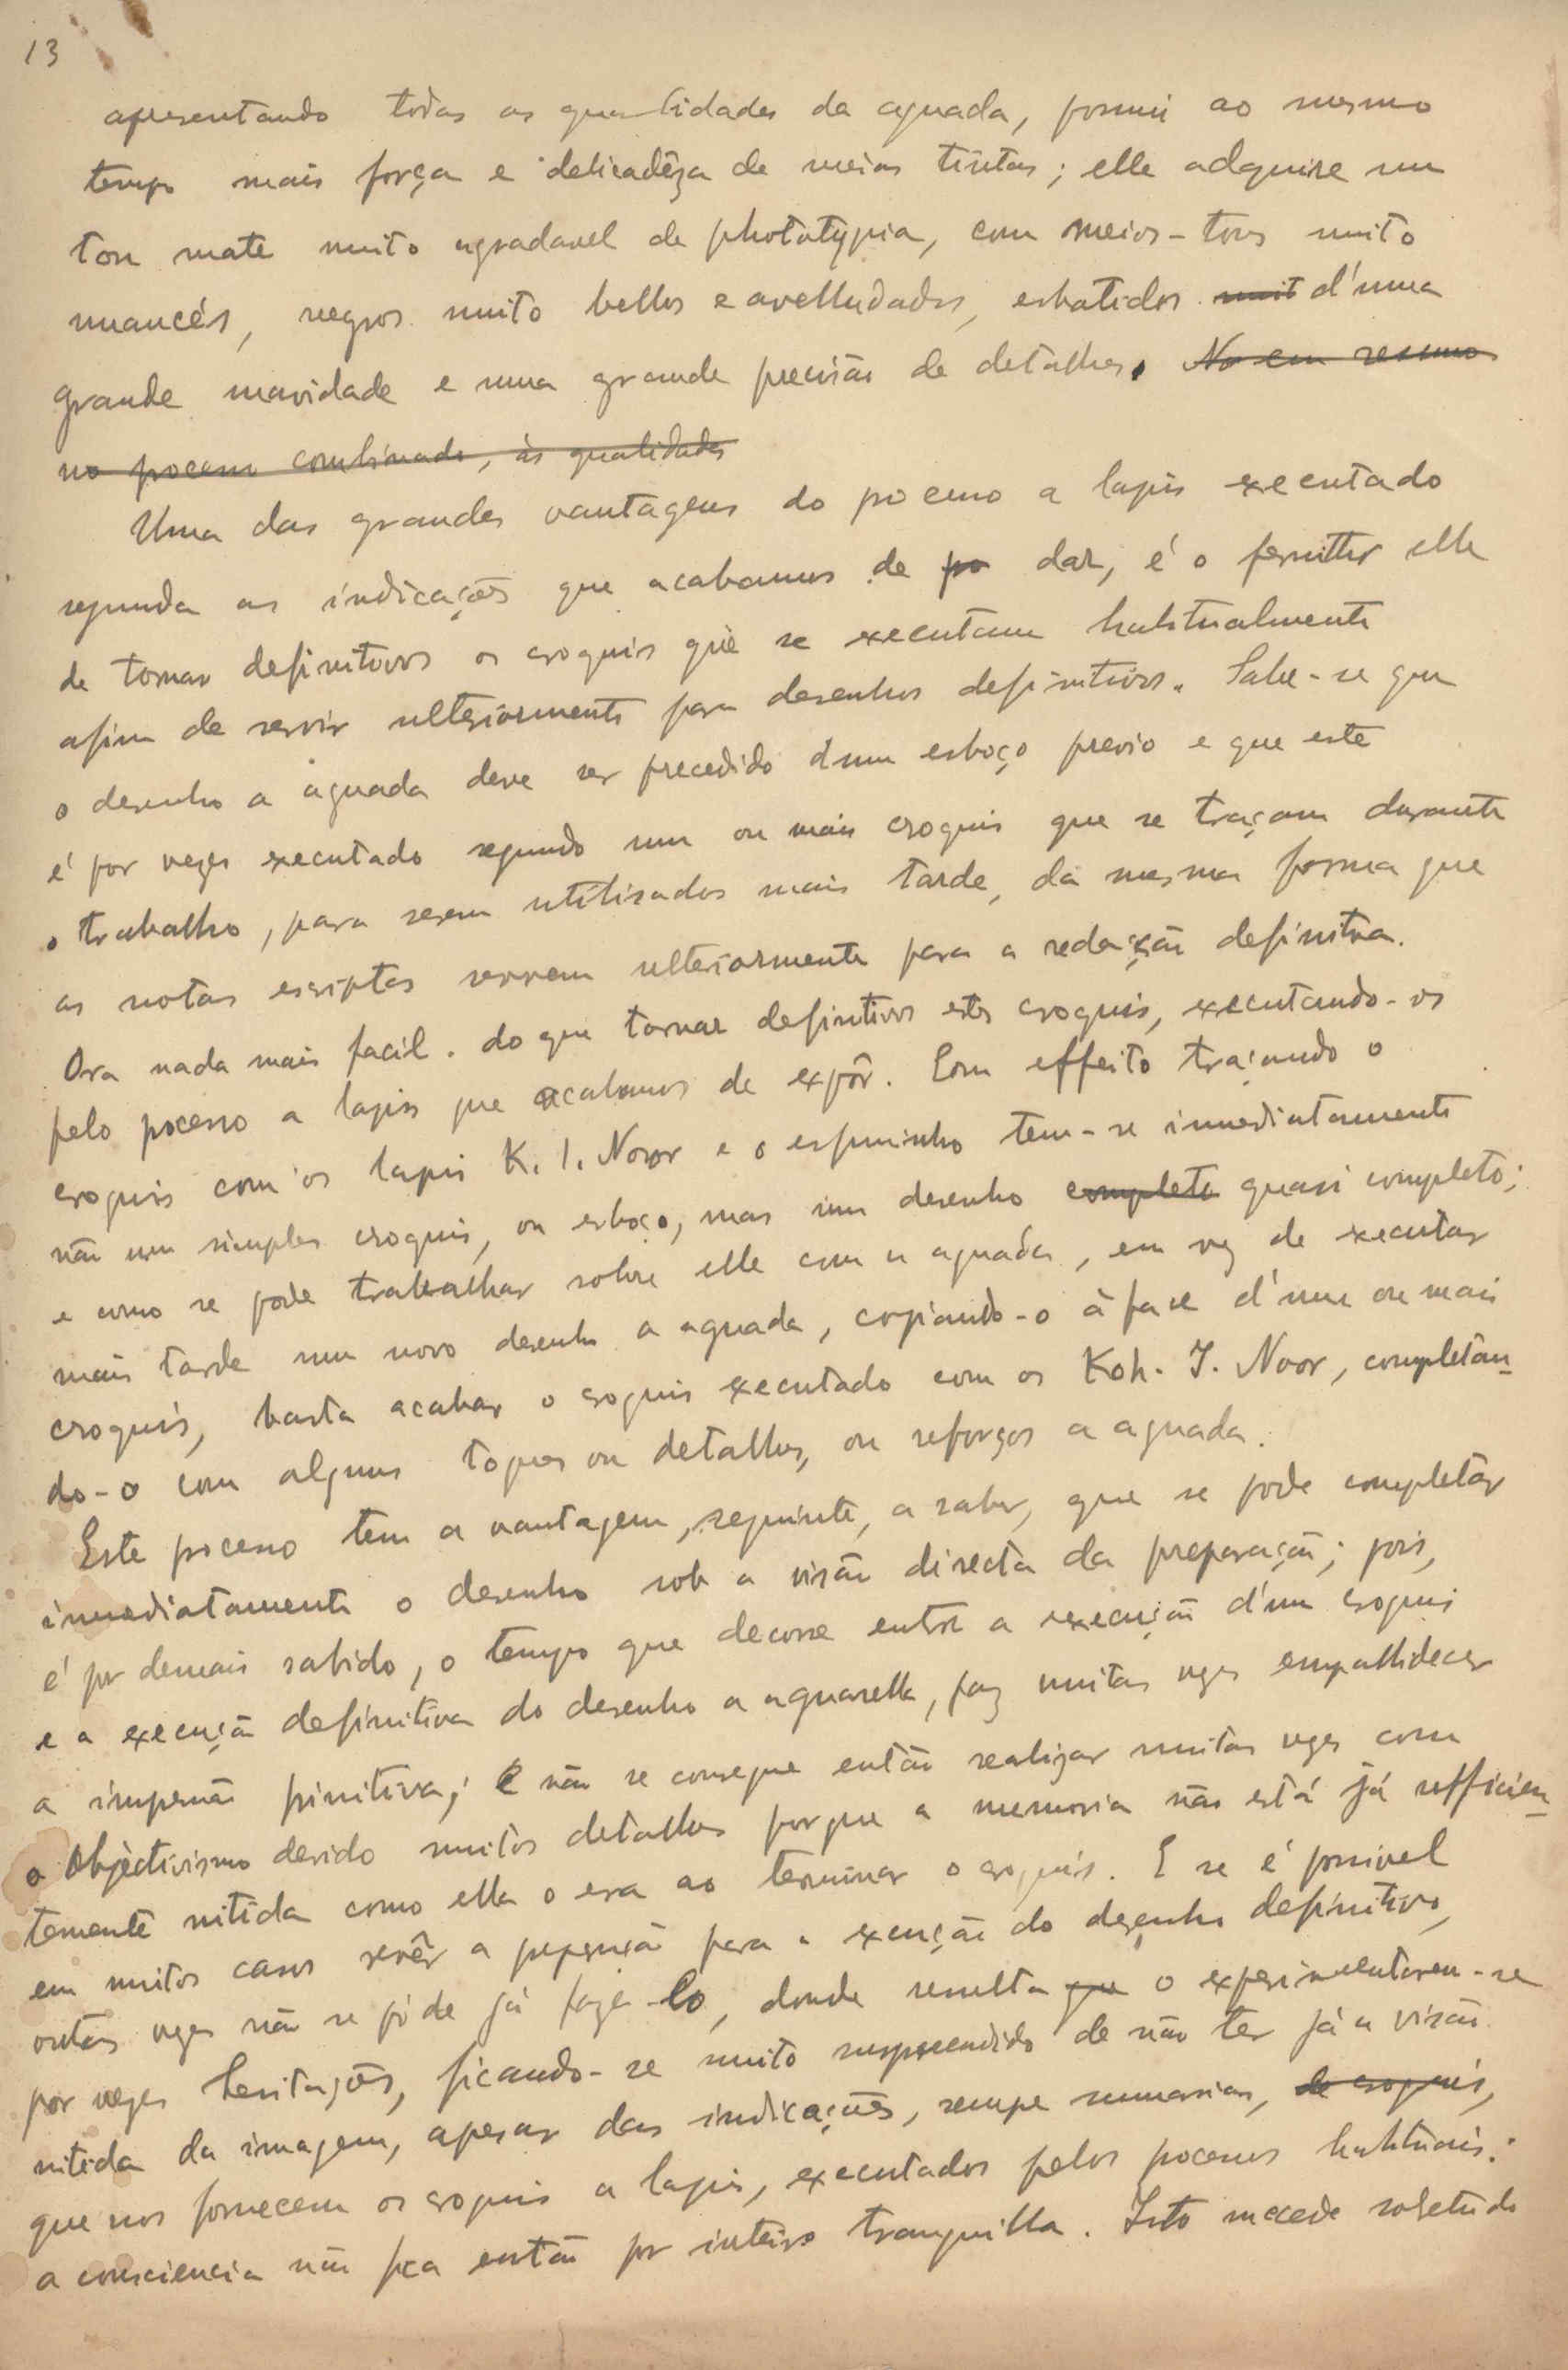 13
apresentando todas as qualidades da aguada, possui ao mesmo
tempo mais força e delicadêza de meias tintas; elle adquire um
ton mate muito agradavel de phototypia, com meios-tons muito
nuancés, negros muito bellos e avelludados, esbatidos muit d'uma
grande suavidade e uma grande precisão de detalhes. No em resumo
no processo combinado, às qualidades
Uma das grandes vantagens do processo a lapis executado
segundo as indicações que acabamos de po dar, é o permittir elle
de tornar definitivos os croquis que se executam habitualmente
afim de servir ulteriormente para desenhos definitivos. Sabe-se que
o desenho a aguada deve ser precedido d'um esboço previo e que este
é por vezes executado segundo um ou mais croquis que se traçam durante
o trabalho, para serem utilisados mais tarde, da mesma forma que
as notas escriptas servem ulteriormente para a redacção definitiva.
Ora nada mais facil do que tornar definitivos estes croquis, executando-os
pelo processo a lapis que acabamos de expôr. Com effeito traçando o
croquis com os lapis K. I. Noor e o esfuminho tem-se immediatamente
não um simples croquis, ou esboço, mas um desenho completo quasi completo;
e como se pode trabalhar sobre elle com a aguada, em vez de executar
mais tarde um novo desenho a aguada, copiando-o à face d'um ou mais
croquis, basta acabar o croquis executado com os Koh. I. Noor, completan-
do-o com alguns toques ou detalhes, ou reforços a aguada.
Este processo tem a vantagem, seguinte, a saber, que se pode completar
immediatamente o desenho sob a visão directa da preparação; pois,
é por demais sabido, o tempo que decorre entre a execução d'um croquis
e a execução definitiva do desenho a aguarella, faz muitas vezes empallidecer
a impressão primitiva; e não se consegue então realizar muitas vezes com
o objectivismo devido muitos detalhes porque a memoria não está já sufficien-
temente nitida como ella o era ao terminar o croquis. E se é possivel
em muitos casos revêr a preparação para a execução do desenho definitivo,
outras vezes não se póde já faze-lo, donde resulta que o experimentarem-se
por vezes hesitações, ficando-se muito surprehendido de não ter já a visão
nitida da imagem, apesar das indicações, sempre summarias, de croquis,
que nos fornecem os croquis a lapis, executados pelos processos habituais.
a consciencia não fica então por inteiro tranquilla. Isto succede sobretudo